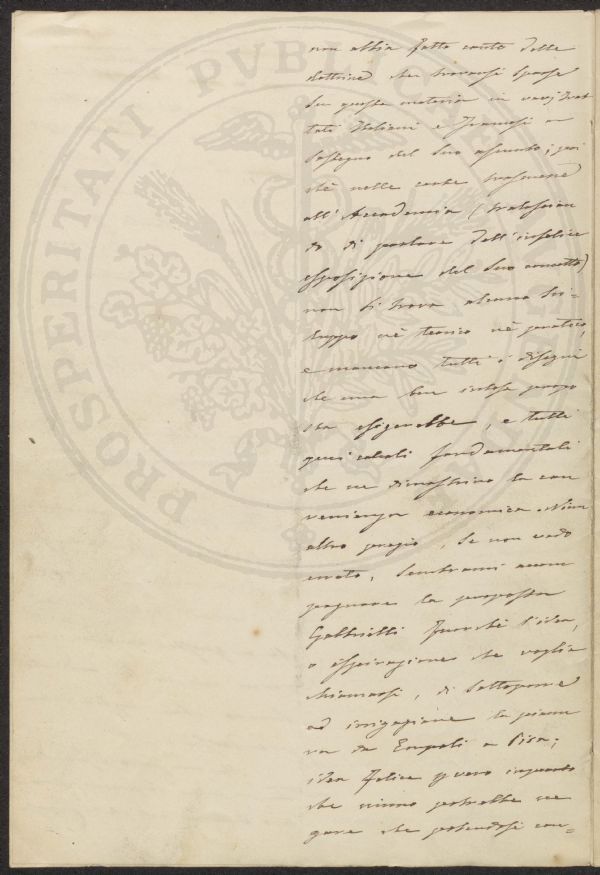 non abbia fatto conto delle
dottrine che trovansi sparse
su questa materia in varj trat
tati Italiani e Francesi a
sostegno del suo assunto; poi
chè nelle carte trasmesse
all'Accademia (tralascian
do di parlare dell'infelice
esposizione del suo concetto)
non si trova alcuno svi-
luppo nè teorico nè pratico,
e mancano tutti i disegni
che una ben intesa propo
sta esigerebbe, e tutti
quei calcoli fondamentali
che ne dimostrino la con
venienza economica. Niun
altro pregio, se non vado
errato, sembrami accom
pagnare la proposta
Gabbrielli fuorchè l'idea,
o ispirazione che voglia
chiamarsi, di sottoporre
ad irrigazione la pianu
ra da Empoli a Pisa;
idea felice invero inquanto
che niuno potrebbe ne
gare che potendosi con=
PROSPERITATI PVBLICAE AVGENDAE